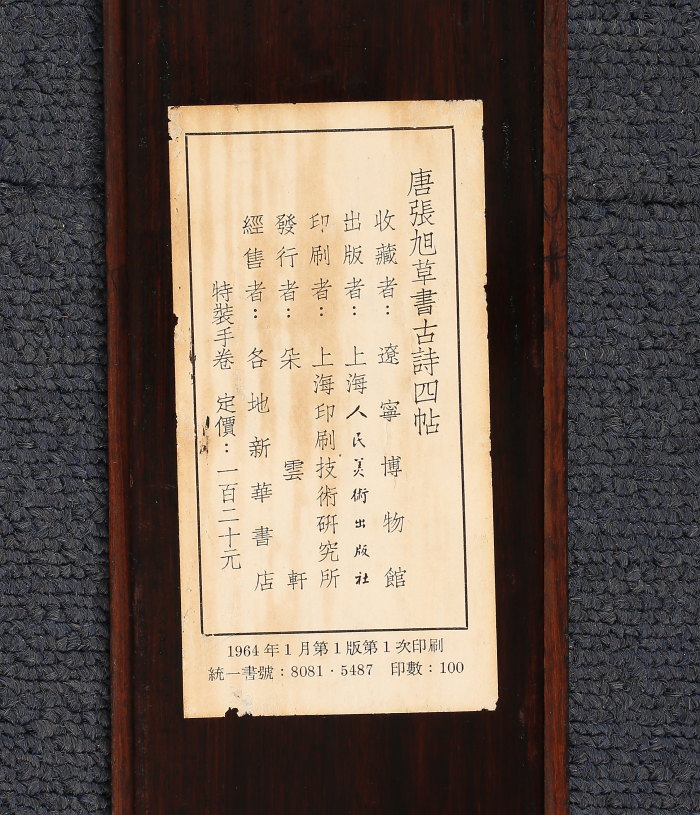 唐張旭草書古詩四帖
收藏者：遼寧博物館
出版者：上海人民美術出版社
印刷者：上海印刷技術研究所
發行者：朵雲軒
經售者：各地新華書店
特裝手卷 定價：一百二十元
1964年1月第1版第1次印刷
統一書號：8081·5487 印數：100